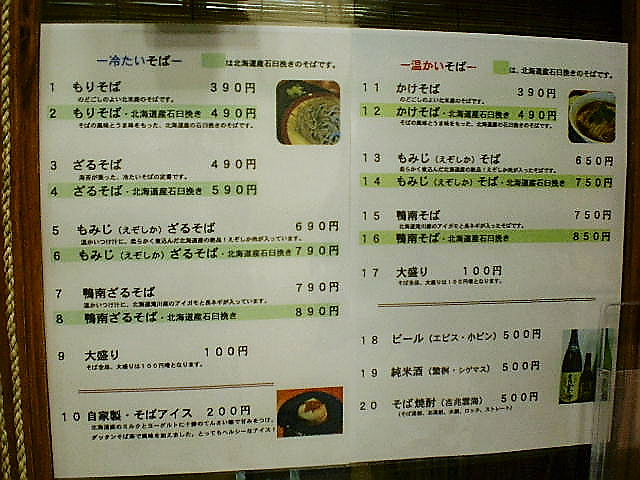 ー冷たいそばー
は北海道産石臼挽きのそばです。
1 もりそば 390円
のどごしのよい北米産のそばです。
2 もりそば・北海道産石臼挽き 490円
そばの風味とうま味をもった、北海道産の石臼挽きのそばです。
3 ざるそば 490円
海苔が乗った、冷たいそばの定番です。
4 ざるそば・北海道産石臼挽き 590円
5 もみじ（えぞしか）ざるそば 690円
温かいつけ汁に、柔らかく煮込んだ北海道産の絶品！えぞしか肉が入っています。
6 もみじ（えぞしか）ざるそば・北海道産石臼挽き 790円
7 鴨南ざるそば 790円
温かいつけ汁に、北海道滝川産のアイガモと長ネギが入っています。
8 鴨南ざるそば・北海道産石臼挽き 890円
9 大盛り 100円
そば全品、大盛りは100円増となります。
10 自家製・そばアイス 200円
北海道産のミルクとヨーグルトに十勝のてんさい糖で甘みをつけ、
ダッタンそば茶で風味を加えました。とってもヘルシーなアイス！
ー温かいそばー
は、北海道産石臼挽きのそばです。
11 かけそば 390円
のどごしのよい北米産のそばです。
12 かけそば・北海道産石臼挽き 490円
そばの風味とうま味をもった、北海道産の石臼挽きのそばです。
13 もみじ（えぞしか）そば 650円
柔らかく煮込んだ北海道産の絶品！えぞしか肉が入ったそばです。
14 もみじ（えぞしか）そば・北海道産石臼挽き 750円
15 鴨南そば 750円
北海道滝川産のアイガモと長ネギが入ったそばです。
16 鴨南そば・北海道産石臼挽き 850円
17 大盛り 100円
そば全品、大盛りは100円増となります。
18 ビール（エビス・小ビン）500円
19 純米酒（繁桝・シゲマス） 500円
20 そば焼酎（吉兆雲海） 500円
（そば湯割、お湯割、水割、ロック、ストレート）